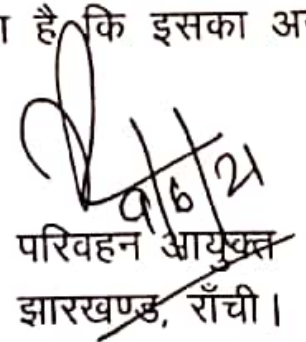 है कि इसका
9/6/21
परिवहन आयुक्त
झारखण्ड, राँची।